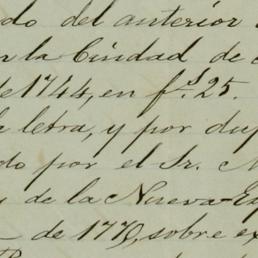 do del anterior
n la Ciudad de
de 1744, en f.s 25.
letra, y por dup
do por el Sr.
de la Nueva Esp
de 1770, sobre ex